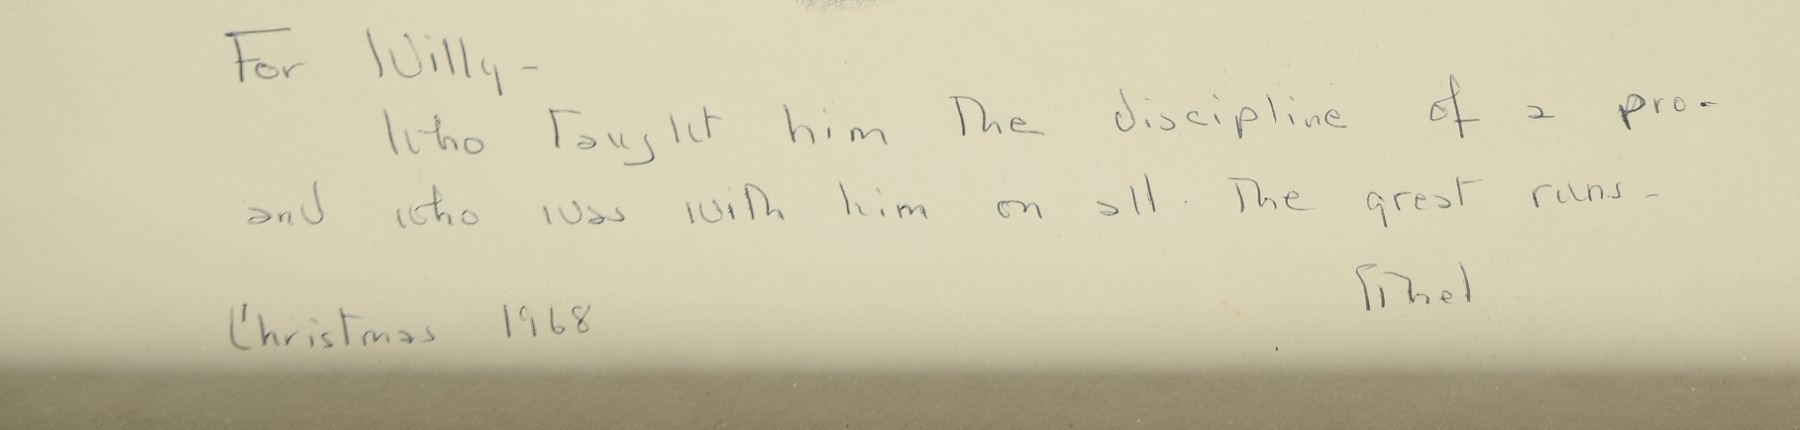 For Willy-
Who Taught him The discipline of a pro--
and who was with him on all The great runs-
Ethel
Christmas 1968